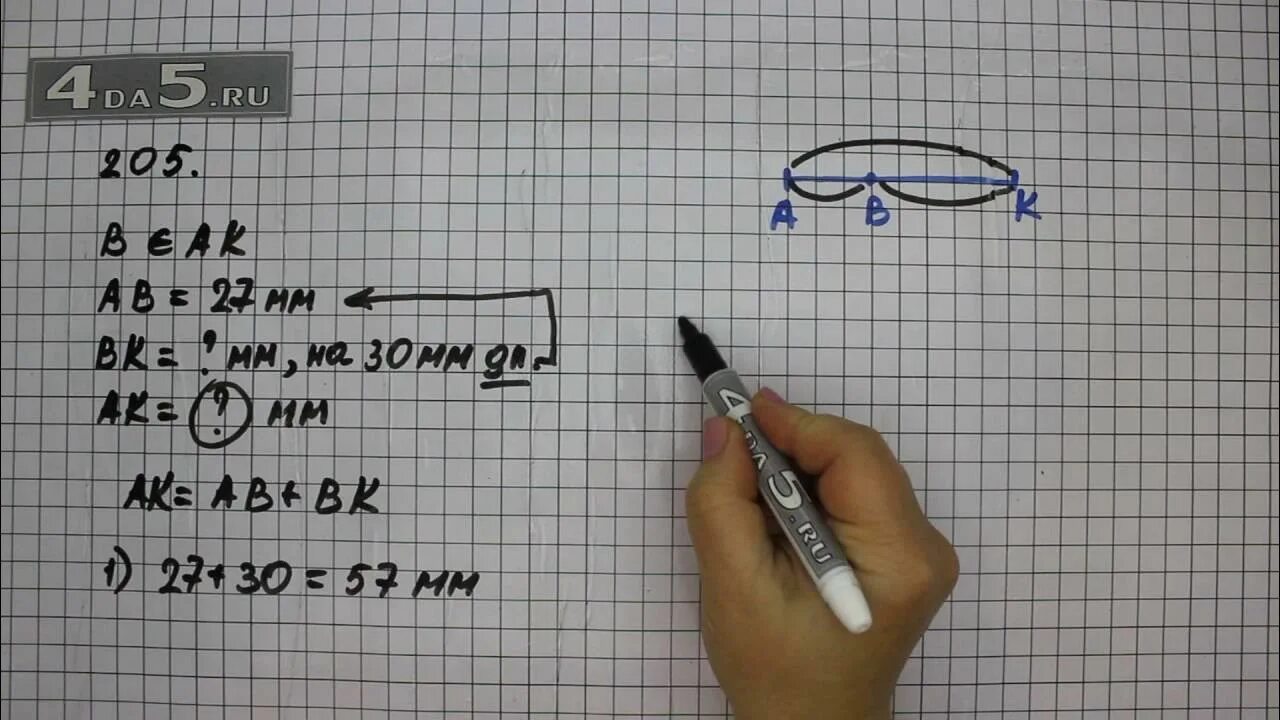 4DA5.RU
205.
B ∈ AK
AB = 27 мм
BK = ? мм, на 30 мм дл.
AK = ? мм
AK = AB + BK
1) 27 + 30 = 57 мм
A B K
4DA5.RU